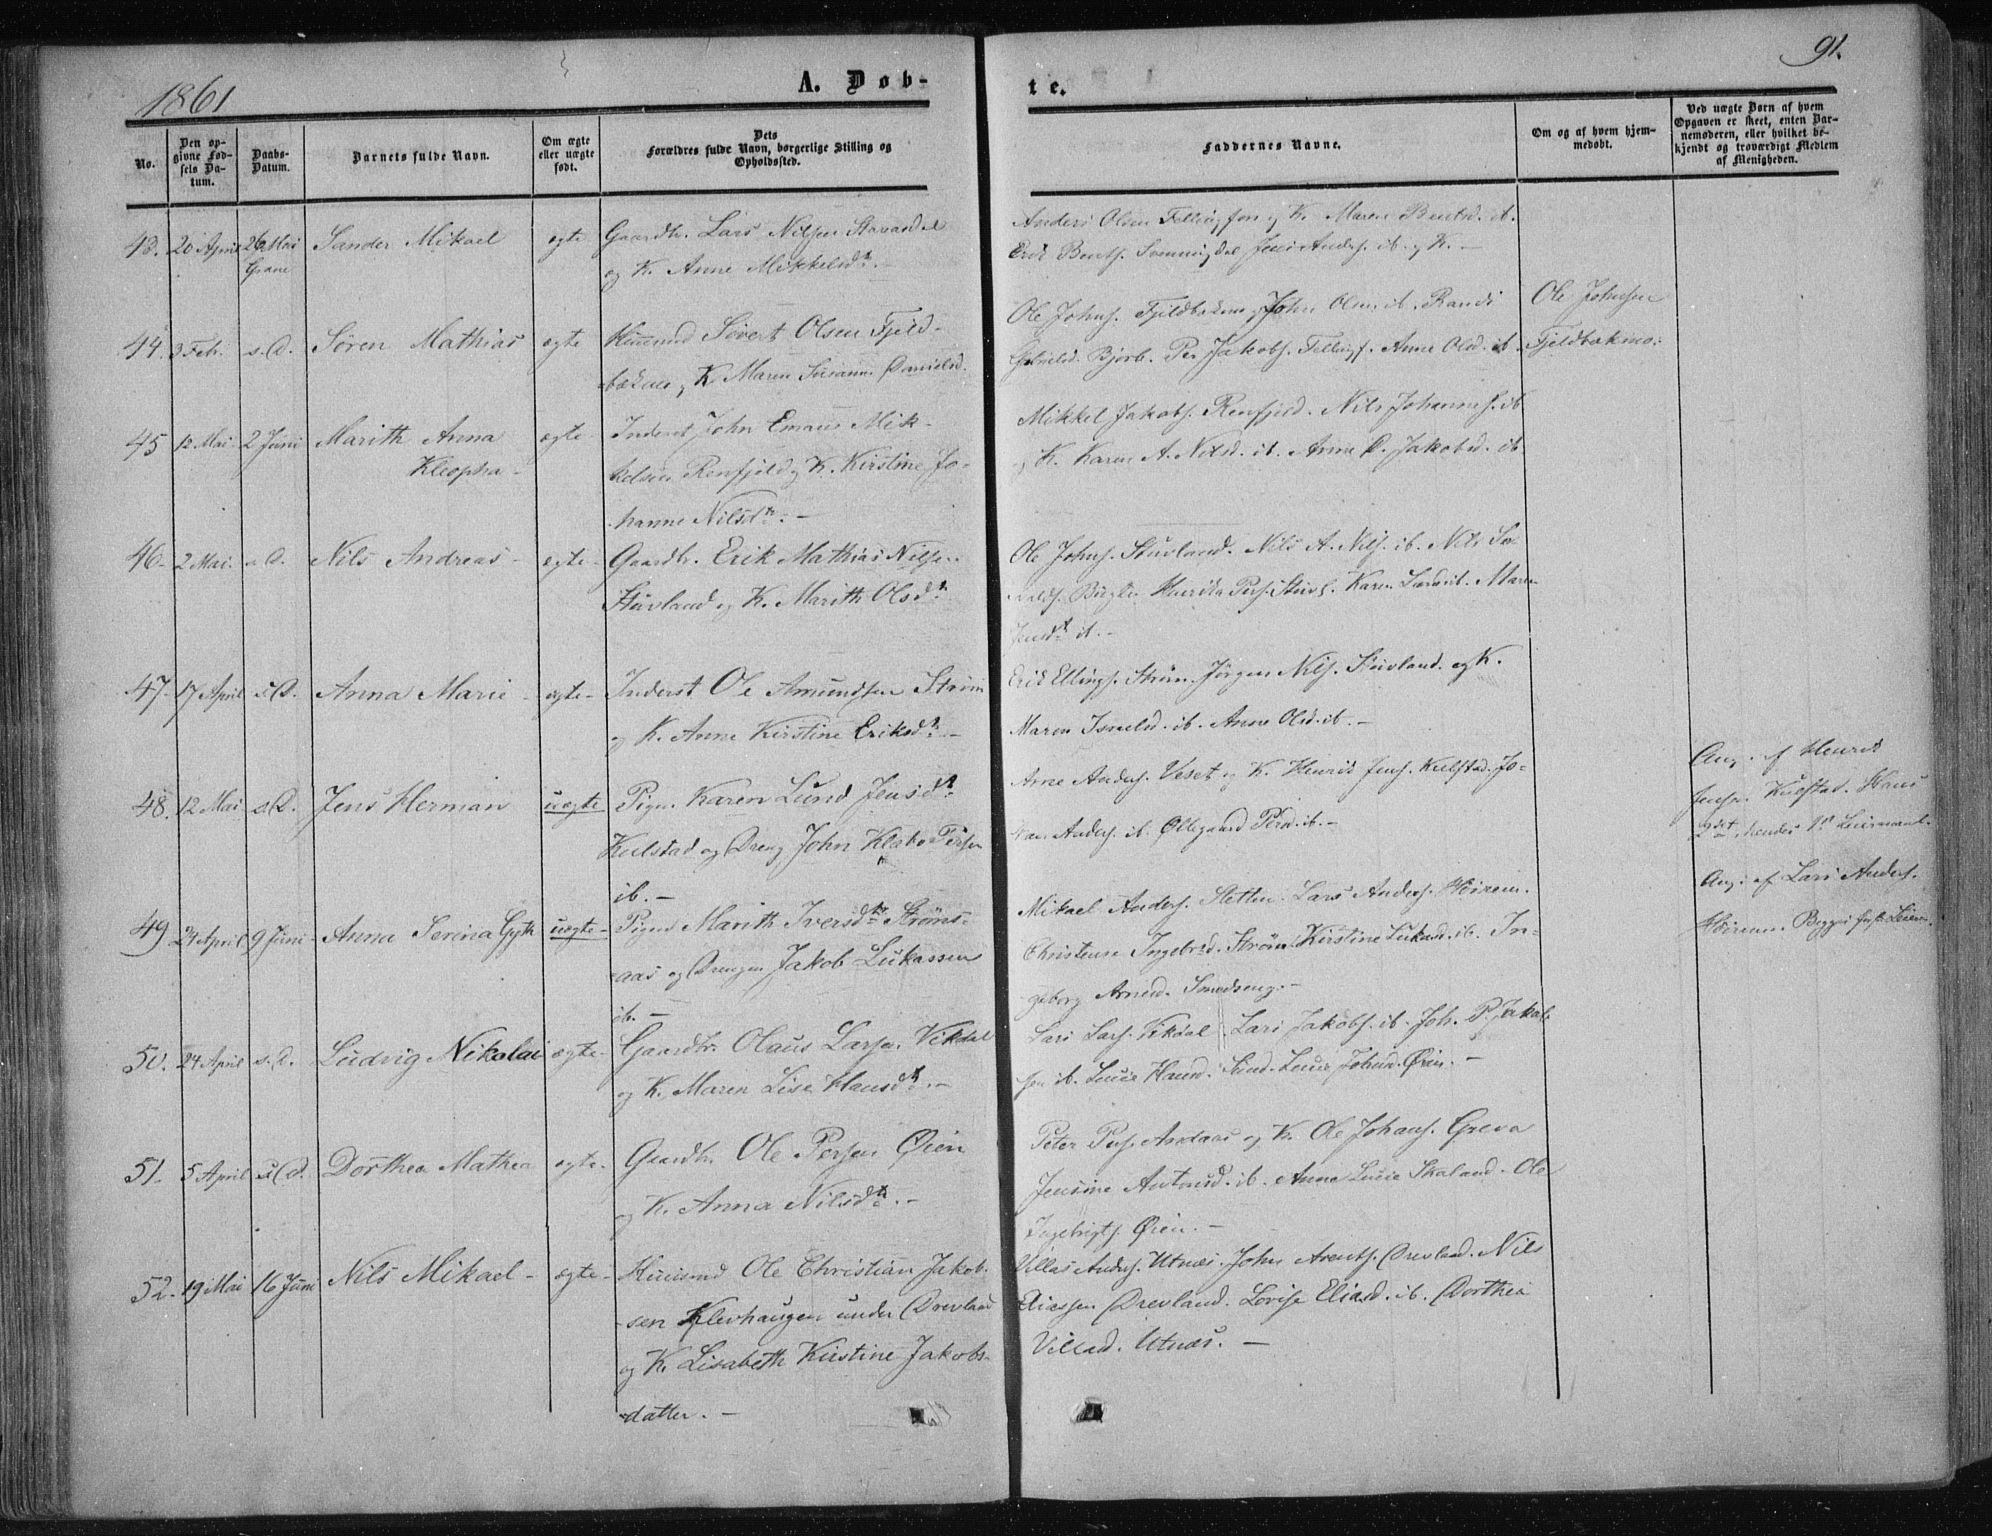 1861
A. Døb-
te.
91.
No.
Den op-
givne Fød-
sels Da-
tum.
Daabs-
Datum.
Barnets fulde Navn.
Om ægte
eller uægte
født.
Dets
Forældres fulde Navn, borgerlige Stilling og
Opholdssted.
Faddernes Navne.
Om og af hvem hjem-
medøbt.
Ved uægte Børn af hvem
Opgaven er skeet, enten Bar-
nemoderen, eller hvilket be-
kjendt og troværdigt Medlem
af Menigheden.
43. 20 April 26 Mai Sander Mikael ægte Gaardbr. Lars Nilsen
Grane og K. Anne Mikkelsdtr. -
Anders Olsen Fellingfors og K. Maren Bentsd. ib.
Erik Bents. Svenningdal Jens Anders. ib. og K. -
44. 3 Febr. s.D. Søren Mathias ægte Huusmd Sivert Olsen Fjeld-
bækmo og K. Maren Susanne Danielsd.
Ole Johns. Fjeldbækmo, John Olsen ib. Randi
Gabrielsd. Bjorb. Per Jakobs. Fellingf. Anne Olsd. ib.
Ole Johnsen
Fjeldbækmo:
45 12 Mai 2 Juni Marith Anna ægte Inderst John Emaus Mik-
Kleopha - kelsen Renfjeld og K. Kirstine Jo-
hanne Nilsdtr. -
Mikkel Jakobs. Renfjeld. Nils Johannes. ib
og K. Karen A. Nilsd. ib. Anne D. Jakobsd. ib
46. 2 Mai. s.D. Nils Andreas - ægte Gaardbr. Erik Mathias Nilsen
Stuvland og K. Marith Olsdtr
Ole Johns. Stuvland. Nils A. Nils. ib. Nils
Henrikke Pers. Stuvl. Karen Larsd. ib. Maren
Jensdtr ib. -
47. 17 April s.D. Anna Marie - ægte Inderst Ole Amundsen Strøm
og K. Anne Kirstine Eriksdtr. -
Erik Ellings. Strøm. Jørgen Nils. Stuvland. og K.
Maren Ismelsd. ib. Anne Olsd. ib. -
48. 12 Mai s.D. Jens Herman uægte Pigen Karen Lund Jensdtr
Kulstad og Dreng John Klabo Persen
ib. -
Arne Anders. Veset og K. Henrik Jens. Kulstad. Jo-
han Anders. ib. Øllegaard Persd. ib. -
Ang. af Henrik
Jensen Kulstad. Hans
2det, hendes 1ste Leiermaal.
49 24 April 9 Juni Anna Serina Gyth uægte Pigen Marith Iversdtr Strøms-
aas og Drengen Jakob Lukassen
ib. -
Mikael Anders. Sletten. Lars Anders. Høirem.
Christense Ingebrd. Strøm Kirstine Lukasd. ib. In-
geborg Arnesd. Smedseng. -
Ang. af Lars Anders.
Høirem. Begges første Leierm.
50. 24 April s.D. Ludvig Nikolai ægte Gaardbr. Olaus Larsen Vikdal
og K. Maren Lise Hansdtr. -
Lars Lars. Vikdal. Lars Jakobs. ib. Joh. P. Jakob-
sen ib. Lucie Hansd. Lund. Lucie Johnsd. Øien. -
51. 5 April s.D. Dorthea Mathea ægte Gaardbr. Ole Persen Øien
og K. Anna Nilsdtr. -
Peter Pers. Andaas og K. Ole Johans. Greva
Jensine Antonsd. ib. Anne Lucie Skaland. Ole
Ingebrigts. Øien. -
52. 19 Mai 16 Juni Nils Mikael - ægte Huusmd Ole Christian Jakob-
sen Klevhaugen under Drevland
og K. Lisabeth Kirstine Jakobs-
datter. -
Villas Anders. Utnæs. John Arents. Drevland. Nils
Eliassen Drevland. Lovise Eliasd. ib. Dorthea
Villasd. Utnæs. -